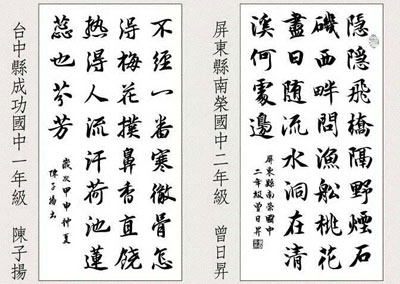 隱隱飛橋隔野煙石
磯西畔問漁舩桃花
盡日随流水洞在清
溪何處邊
屏東縣南榮國中
二年級曾日昇
屏東縣南榮國中二年級 曾日昇
不經一番寒徹骨怎
得梅花撲鼻香直饒
熱得人流汗荷池蓮
蕊也芬芳
歲次甲申仲夏
陳子揚書
台中縣成功國中一年級 陳子揚